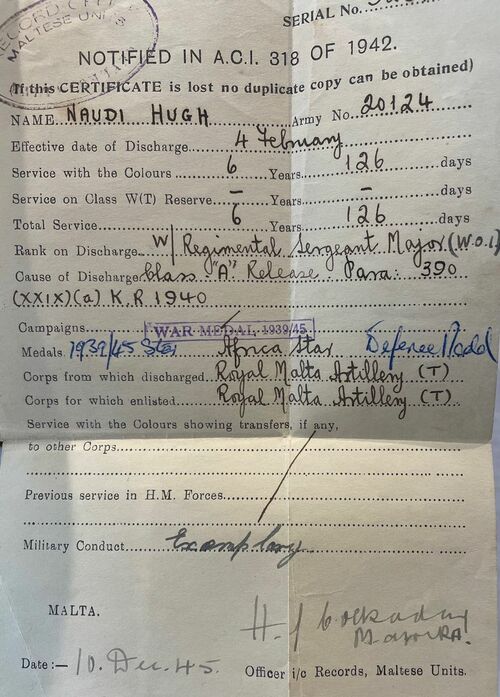 RECORD OFFICE
MALTESE UNITS
SERIAL No.
NOTIFIED IN A.C.I. 318 OF 1942.
(If this CERTIFICATE is lost no duplicate copy can be obtained)
NAME NAUDI HUGH Army No. 20124
Effective date of Discharge 4 February
Service with the Colours 6 Years 126 days
Service on Class W(T) Reserve – Years – days
Total Service 6 Years 126 days
Rank on Discharge W/Regimental Sergeant Major (W.O.1)
Cause of Discharge Class "A" Release Para: 390
(XXIX)(a) K.R. 1940
Campaigns WAR MEDAL 1939/45
Medals 1939/45 Star Africa Star Defence Medal
Corps from which discharged Royal Malta Artillery (T)
Corps for which enlisted Royal Malta Artillery (T)
Service with the Colours showing transfers, if any,
to other Corps
Previous service in H.M. Forces
Military Conduct Exemplary
MALTA.
Major RA.
Date:— 10. Dec. 45. Officer i/c Records, Maltese Units.